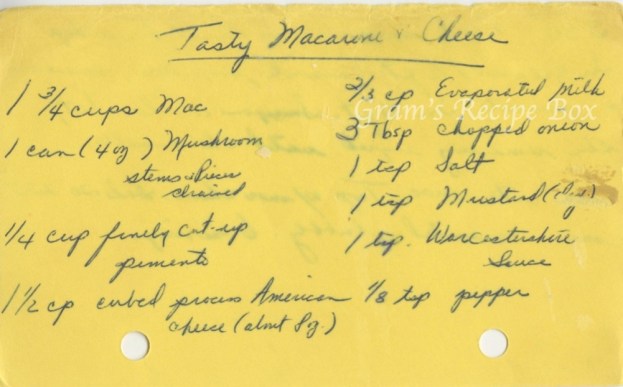 Tasty Macaroni & Cheese
1 3/4 cups Mac
1 can (4 oz) Mushroom
stems & pieces
drained
1/4 cup finely cut-up
pimento
1 1/2 cp cubed process American
cheese (about 8 oz.)
2/3 cp Evaporated Milk
Gram's Recipe Box
3 Tbsp chopped onion
1 tsp Salt
1 tsp Mustard (dry)
1 tsp. Worcestershire
Sauce
1/8 tsp pepper